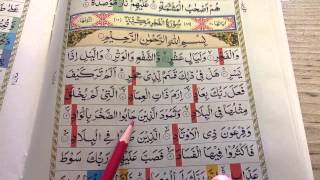 هُمْ أَصْحَٰبُ الْمَشْـَٔمَةِ ۝ عَلَيْهِمْ نَارٌ مُّؤْصَدَةٌ
سُورَةُ الْفَجْرِ مَكِّيَّةٌ
بِسْمِ اللهِ الرَّحْمٰنِ الرَّحِيْمِ
وَالْفَجْرِ ۝ وَلَيَالٍ عَشْرٍ ۝ وَّالشَّفْعِ وَالْوَتْرِ ۝ وَالَّيْلِ اِذَا
يَسْرِ ۝ هَلْ فِيْ ذٰلِكَ قَسَمٌ لِّذِيْ حِجْرٍ ۝ اَلَمْ تَرَ كَيْفَ
فَعَلَ رَبُّكَ بِعَادٍ ۝ اِرَمَ ذَاتِ الْعِمَادِ ۝ الَّتِيْ لَمْ يُخْلَقْ
مِثْلُهَا فِي الْبِلَادِ ۝ وَثَمُوْدَ الَّذِيْنَ جَابُوا الصَّخْرَ بِالْوَادِ ۝
وَفِرْعَوْنَ ذِي الْاَوْتَادِ ۝ الَّذِيْنَ طَغَوْا فِي الْبِلَادِ ۝
فَاَكْثَرُوْا فِيْهَا الْفَسَادَ ۝ فَصَبَّ عَلَيْهِمْ رَبُّكَ سَوْطَ